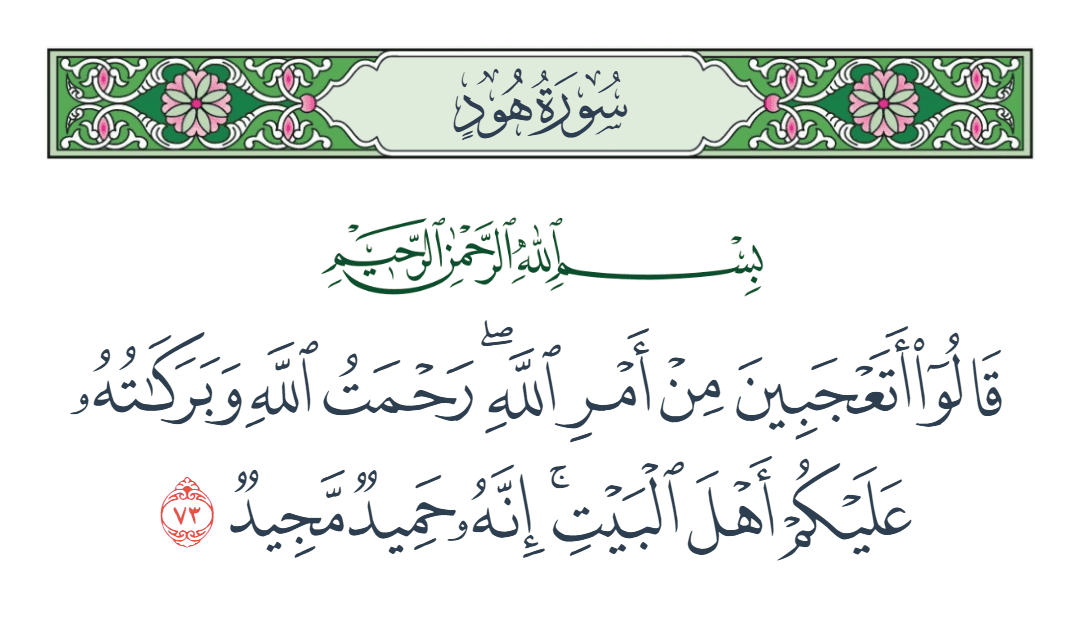 سُورَةُ هُودٍ
بِسْمِ ٱللَّهِ ٱلرَّحْمَٰنِ ٱلرَّحِيمِ
قَالُوٓا۟ أَتَعْجَبِينَ مِنْ أَمْرِ ٱللَّهِ ۖ رَحْمَتُ ٱللَّهِ وَبَرَكَـٰتُهُۥ
عَلَيْكُمْ أَهْلَ ٱلْبَيْتِ ۚ إِنَّهُۥ حَمِيدٌ مَّجِيدٌ ٧٣